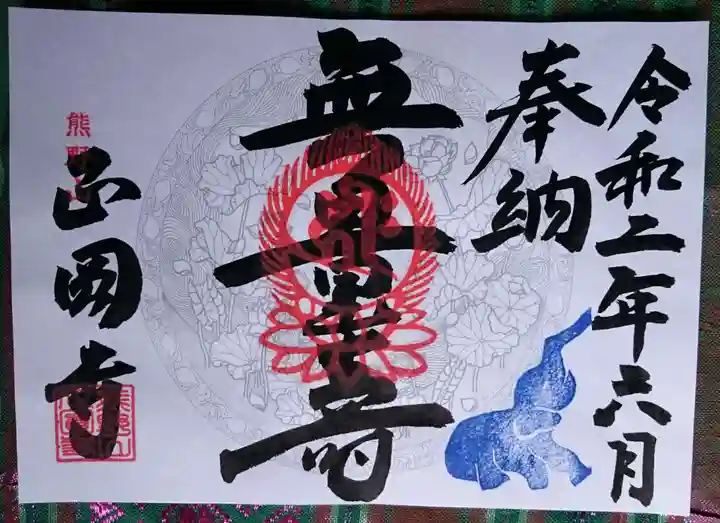 令和二年六月
奉納
無量寿
正圀寺
熊野